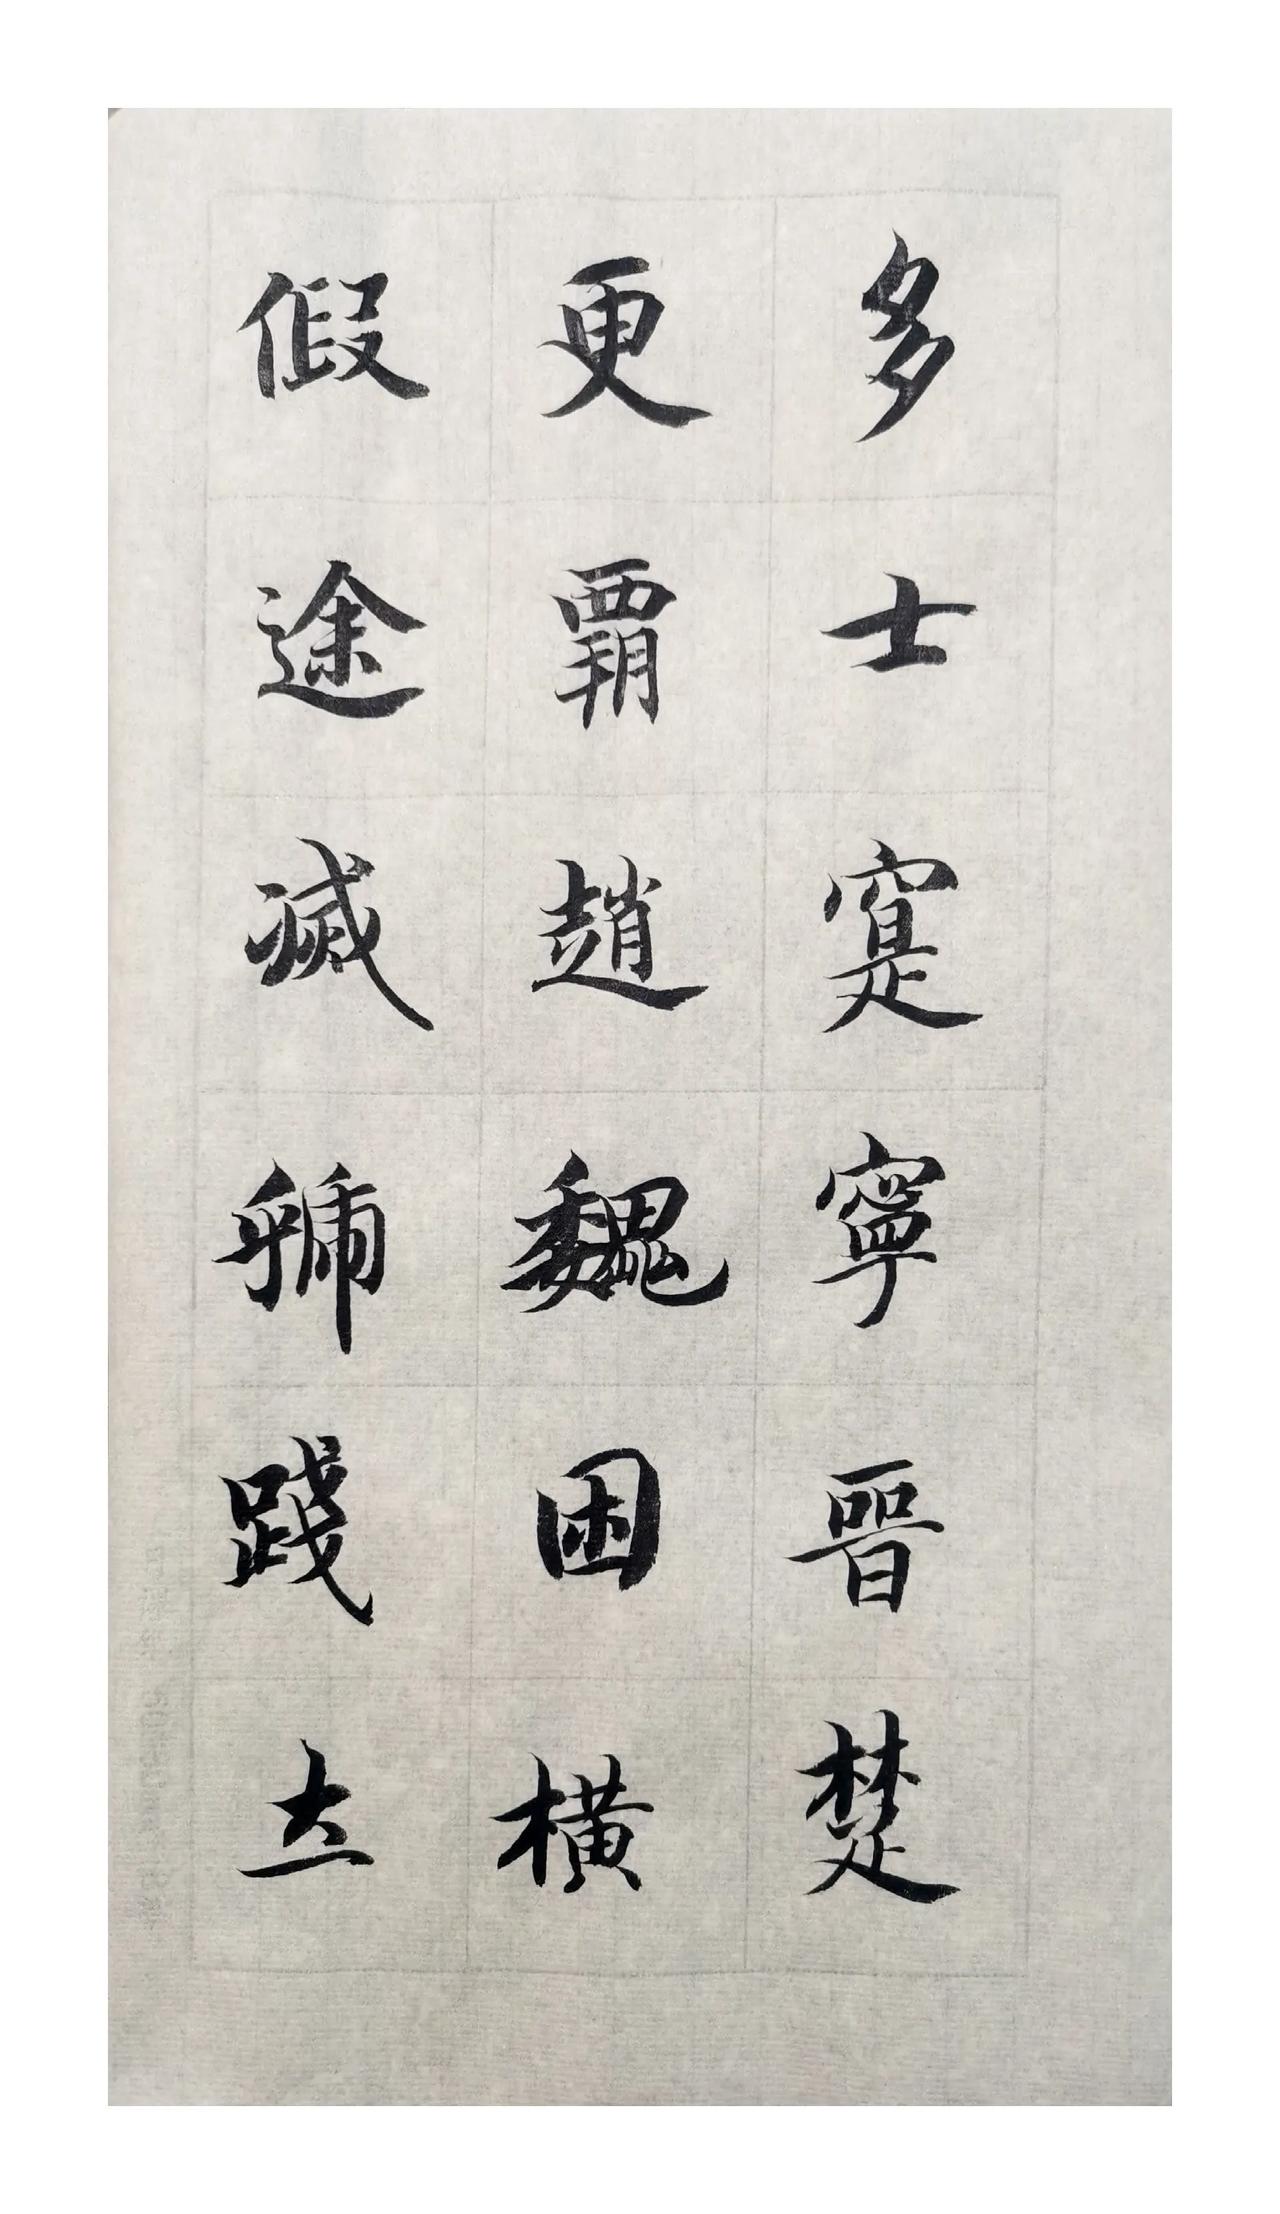 多士寔寧晉楚
更覇趙魏困橫
假途滅虢踐土